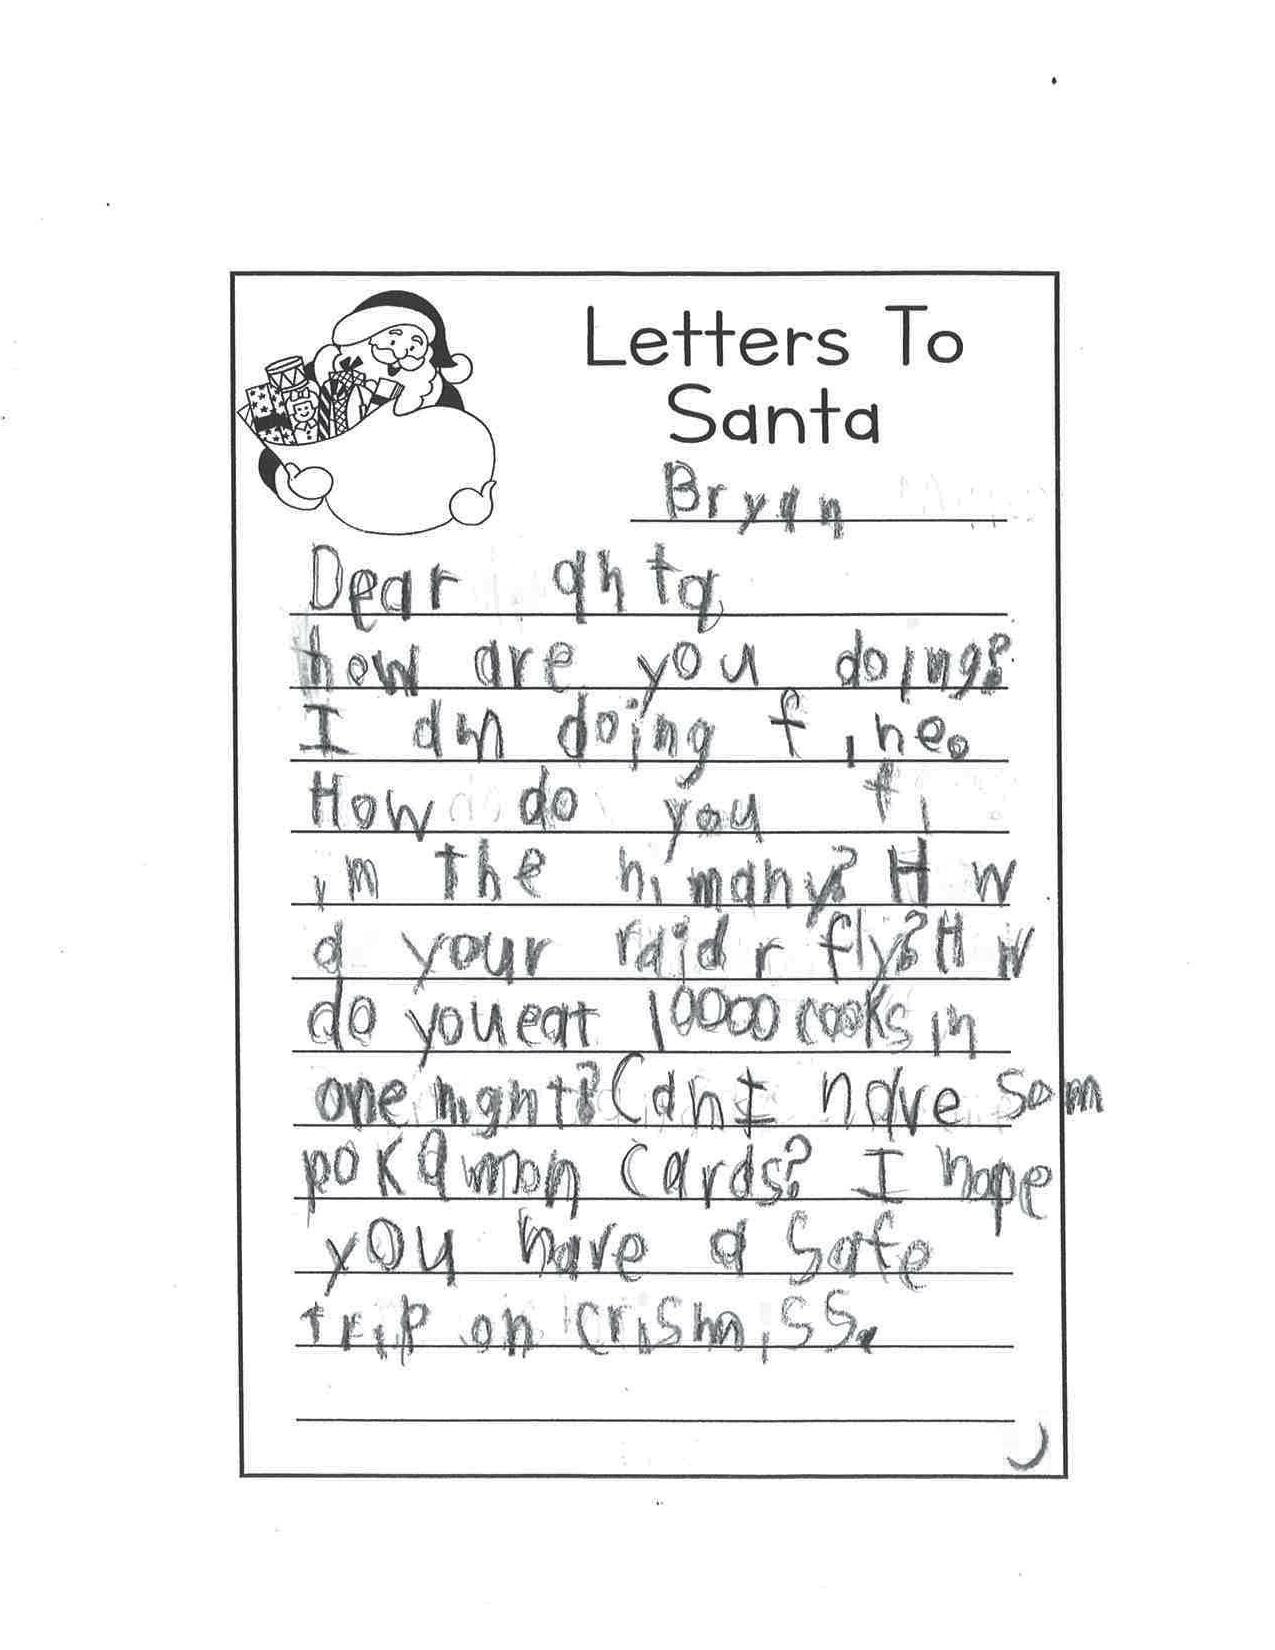 Letters To
Santa
Bryan
Dear anta
how are you doing?
I am doing fine.
How do you fi
im the himany? H w
d your raidr fly? H w
do you eat 10000 cooks in
one night? Can I have som
pokamon cards? I hope
you have a safe
trip on crismiss.